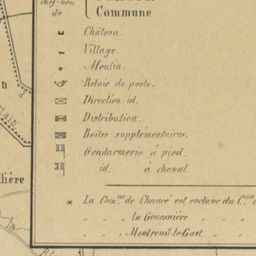 chef-lieu
de
Commune
Château.
Village.
Moulin.
Relais de poste.
Direction id.
Distribution.
Boîtes supplémentaires.
Gendarmerie à pied.
id. à cheval.
La Con.ne de Chancé est enclavée du C.on
la Gouesnière
Montreuil-le-Gast
lière